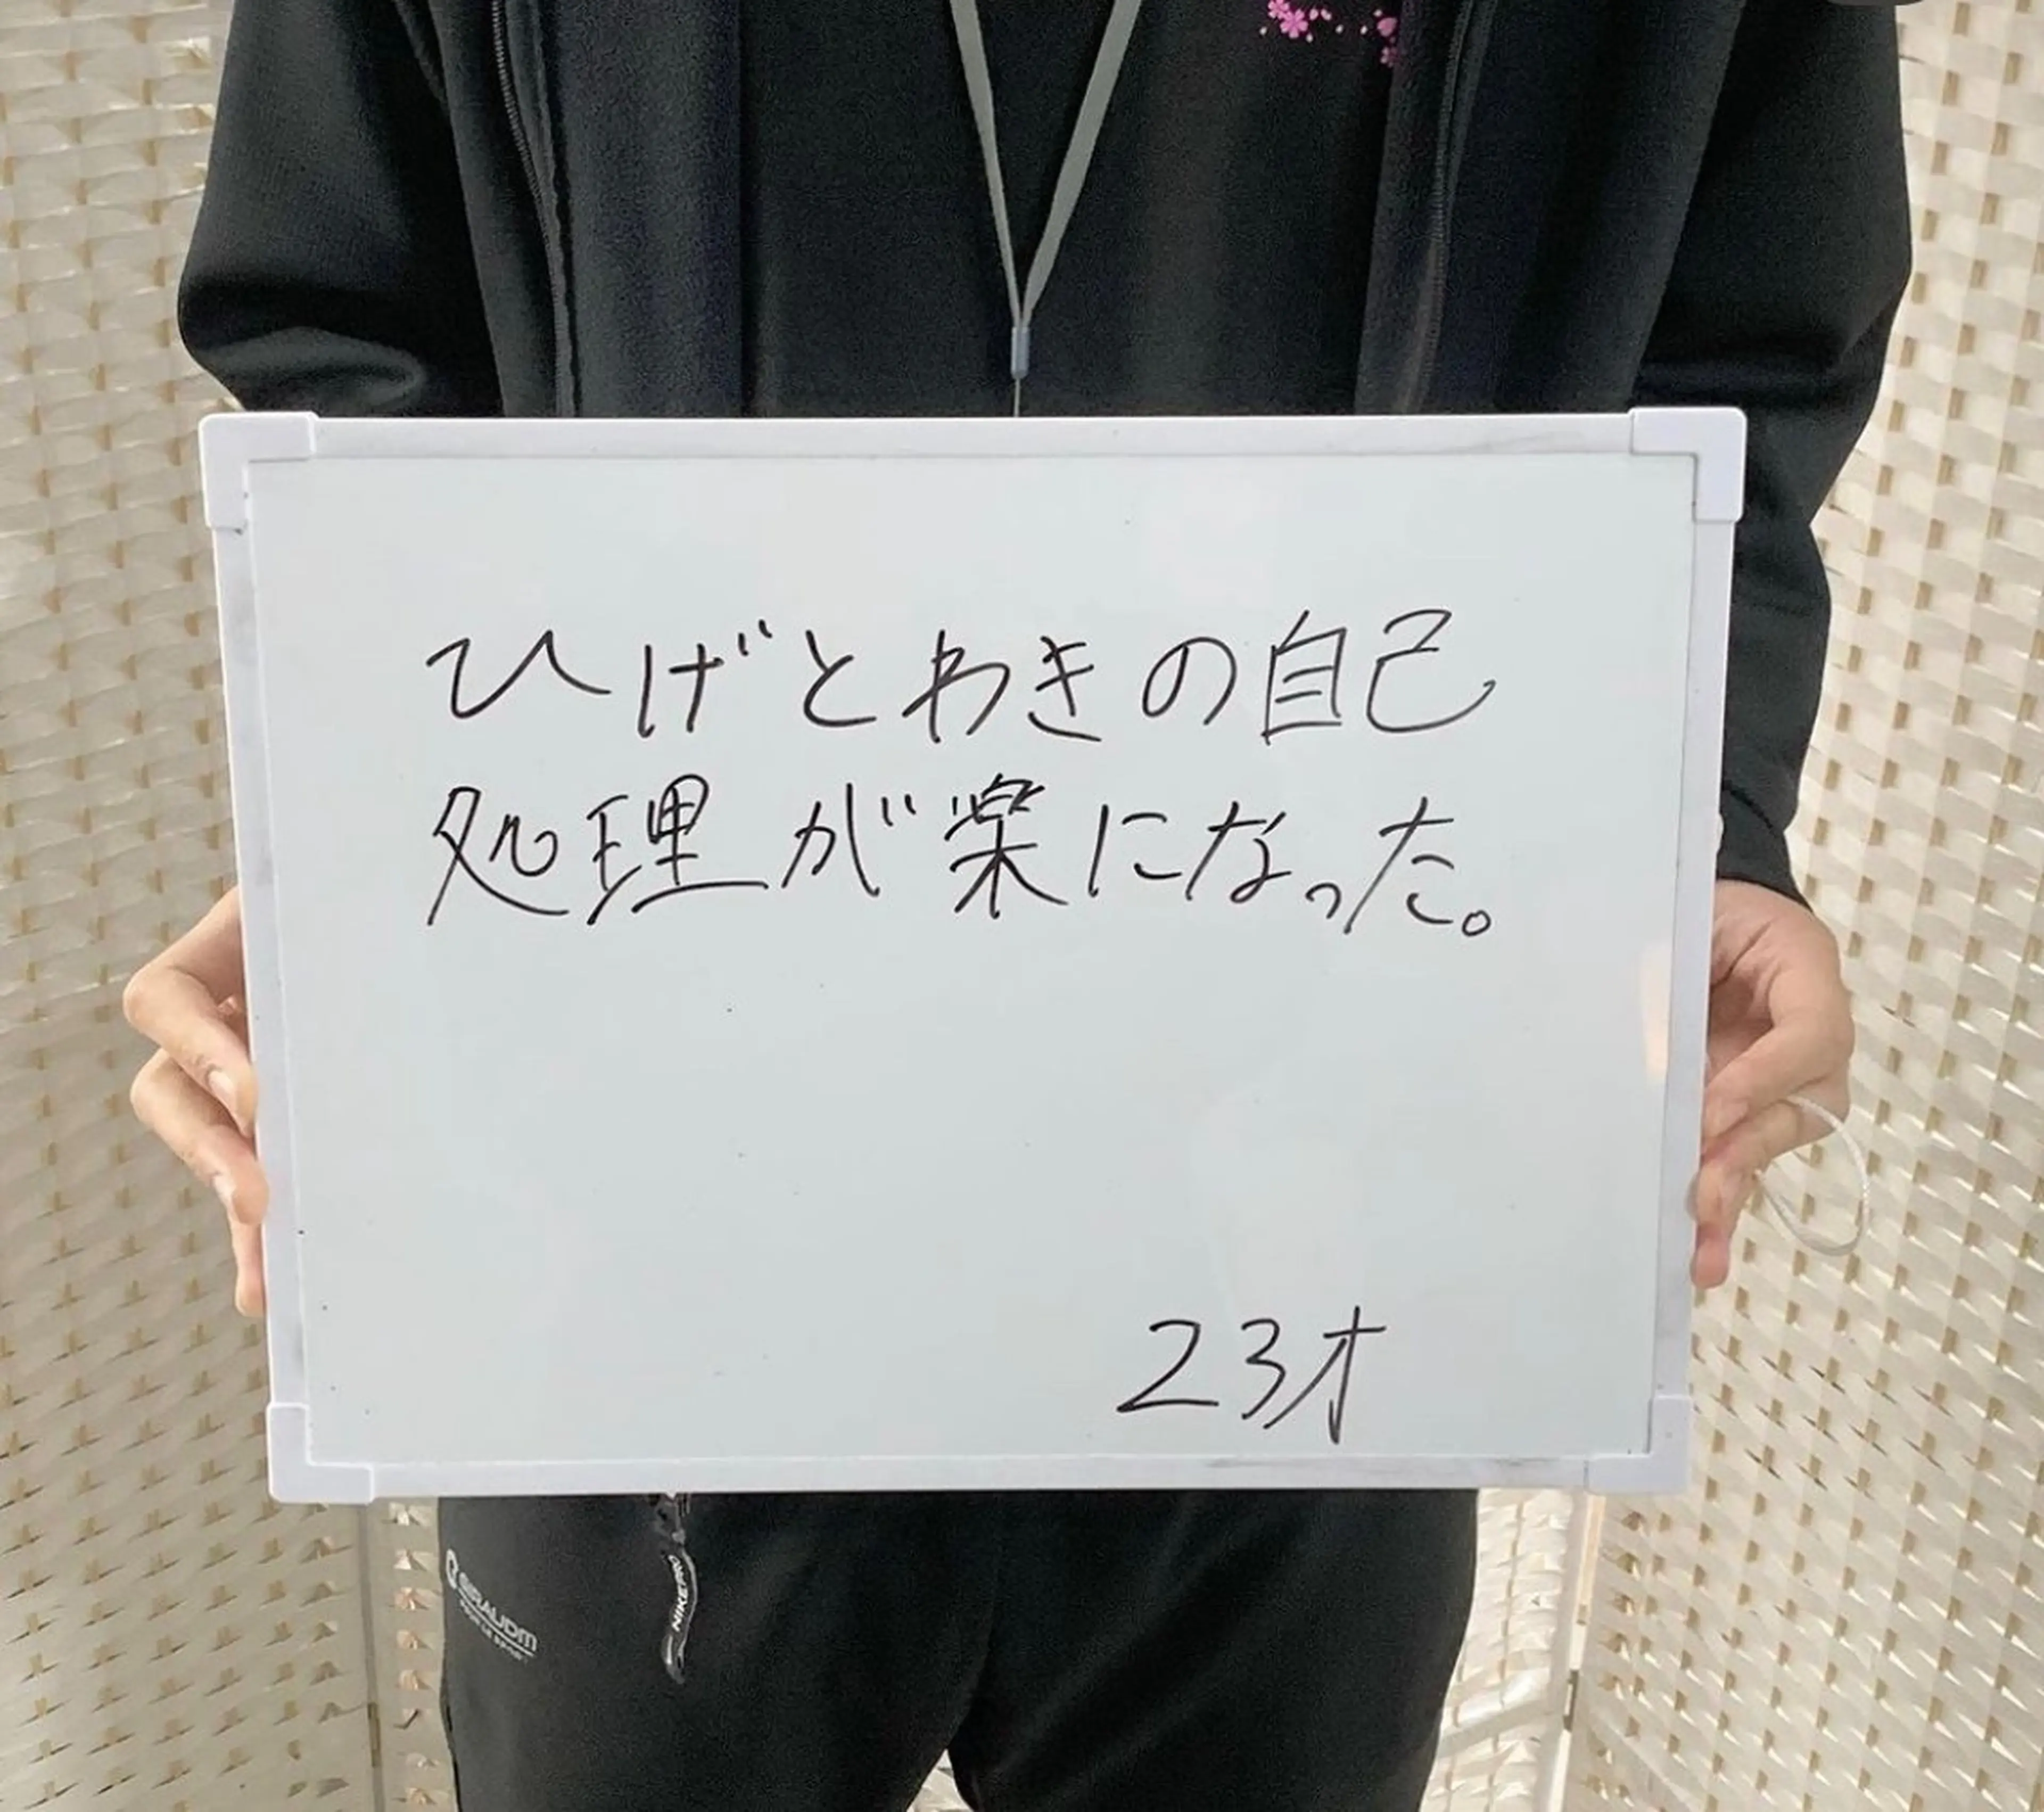 ひげとわきの自己
処理が楽になった。
23才
NIKEPRO